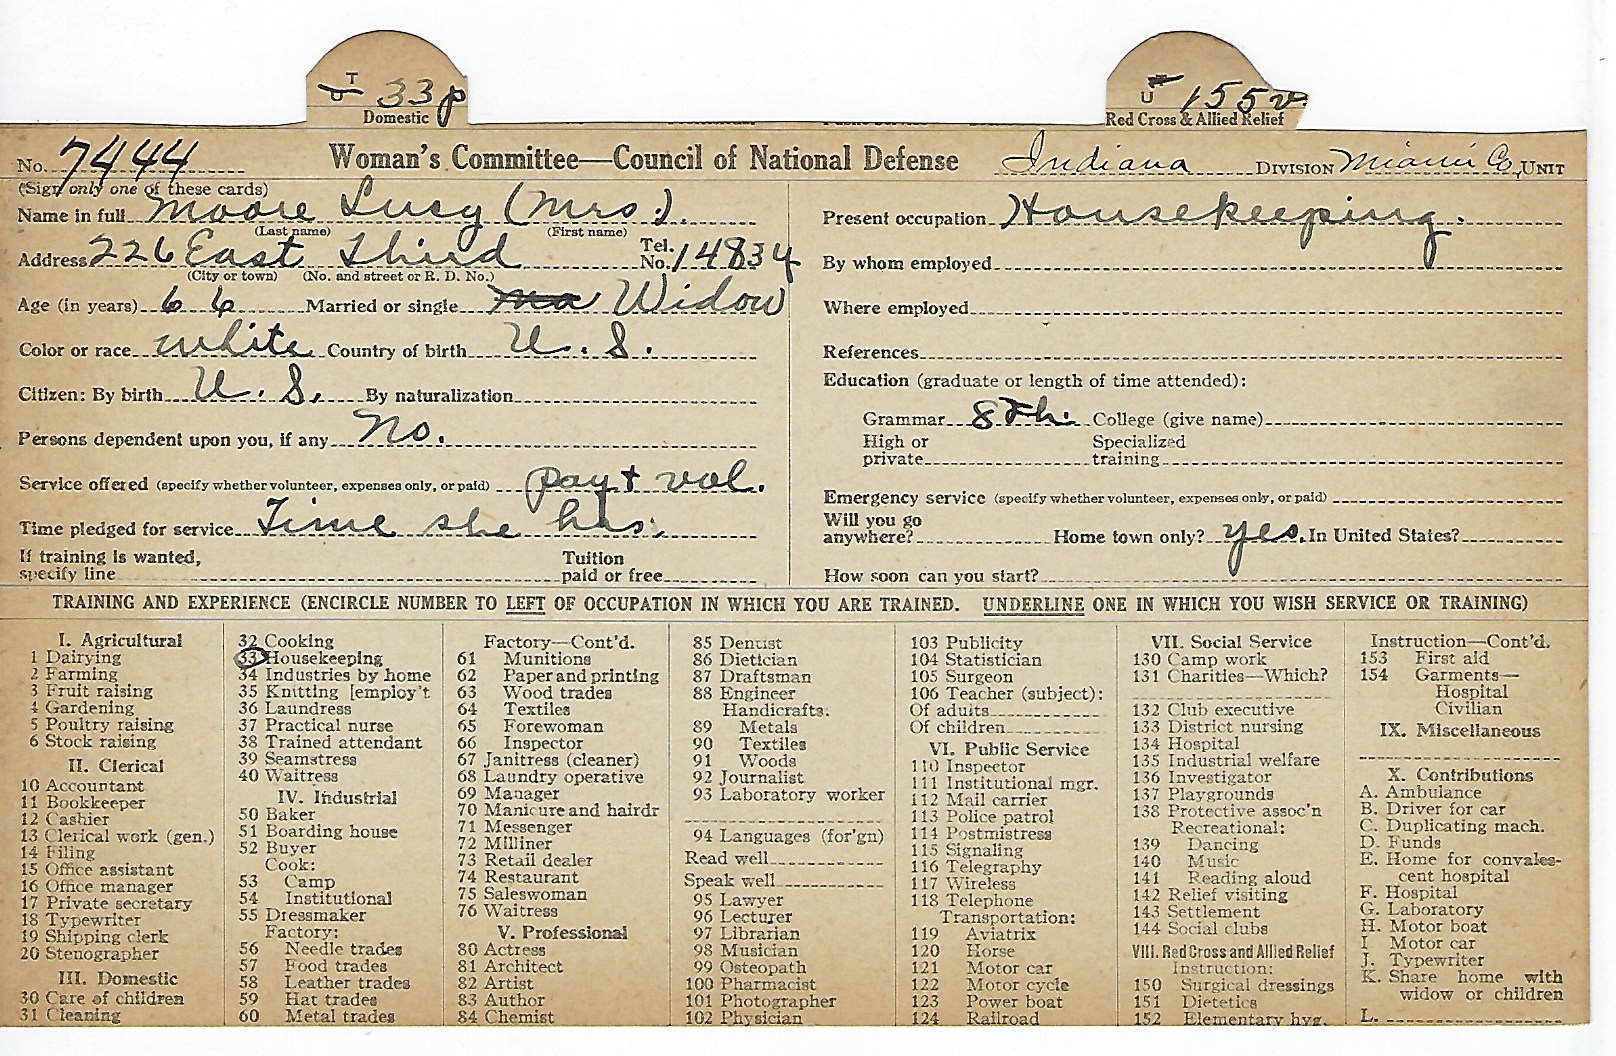 T
U 33 p
Domestic
U 155 v
Red Cross & Allied Relief
No. 7444 Woman's Committee—Council of National Defense Indiana DIVISION Miami Co. UNIT
(Sign only one of these cards)
Name in full Moore Lucy (Mrs.).
(Last name) (First name)
Address 226 East Third Tel. No. 14834
(City or town) (No. and street or R. D. No.)
Age (in years) 66 Married or single Widow
Color or race white Country of birth U. S.
Citizen: By birth U. S. By naturalization
Persons dependent upon you, if any No.
Service offered (specify whether volunteer, expenses only, or paid) pay + vol.
Time pledged for service Time she has.
If training is wanted, specify line Tuition paid or free
Present occupation Housekeeping.
By whom employed
Where employed
References
Education (graduate or length of time attended):
Grammar 8th. College (give name)
High or private Specialized training
Emergency service (specify whether volunteer, expenses only, or paid)
Will you go anywhere? Home town only? yes. In United States?
How soon can you start?
TRAINING AND EXPERIENCE (ENCIRCLE NUMBER TO LEFT OF OCCUPATION IN WHICH YOU ARE TRAINED. UNDERLINE ONE IN WHICH YOU WISH SERVICE OR TRAINING)
I. Agricultural
1 Dairying
2 Farming
3 Fruit raising
4 Gardening
5 Poultry raising
6 Stock raising
II. Clerical
10 Accountant
11 Bookkeeper
12 Cashier
13 Clerical work (gen.)
14 Filing
15 Office assistant
16 Office manager
17 Private secretary
18 Typewriter
19 Shipping clerk
20 Stenographer
III. Domestic
30 Care of children
31 Cleaning
32 Cooking
33 Housekeeping
34 Industries by home
35 Knitting [employ't
36 Laundress
37 Practical nurse
38 Trained attendant
39 Seamstress
40 Waitress
IV. Industrial
50 Baker
51 Boarding house
52 Buyer
Cook:
53 Camp
54 Institutional
55 Dressmaker
Factory:
56 Needle trades
57 Food trades
58 Leather trades
59 Hat trades
60 Metal trades
Factory—Cont'd.
61 Munitions
62 Paper and printing
63 Wood trades
64 Textiles
65 Forewoman
66 Inspector
67 Janitress (cleaner)
68 Laundry operative
69 Manager
70 Manicure and hairdr
71 Messenger
72 Milliner
73 Retail dealer
74 Restaurant
75 Saleswoman
76 Waitress
V. Professional
80 Actress
81 Architect
82 Artist
83 Author
84 Chemist
85 Dentist
86 Dietician
87 Draftsman
88 Engineer
Handicrafts:
89 Metals
90 Textiles
91 Woods
92 Journalist
93 Laboratory worker
94 Languages (for'gn)
Read well
Speak well
95 Lawyer
96 Lecturer
97 Librarian
98 Musician
99 Osteopath
100 Pharmacist
101 Photographer
102 Physician
103 Publicity
104 Statistician
105 Surgeon
106 Teacher (subject):
Of adults
Of children
VI. Public Service
110 Inspector
111 Institutional mgr.
112 Mail carrier
113 Police patrol
114 Postmistress
115 Signaling
116 Telegraphy
117 Wireless
118 Telephone
Transportation:
119 Aviatrix
120 Horse
121 Motor car
122 Motor cycle
123 Power boat
124 Railroad
VII. Social Service
130 Camp work
131 Charities—Which?
132 Club executive
133 District nursing
134 Hospital
135 Industrial welfare
136 Investigator
137 Playgrounds
138 Protective assoc'n
Recreational:
139 Dancing
140 Music
141 Reading aloud
142 Relief visiting
143 Settlement
144 Social clubs
VIII. Red Cross and Allied Relief
Instruction:
150 Surgical dressings
151 Dietetics
152 Elementary hyg.
Instruction—Cont'd.
153 First aid
154 Garments—
Hospital
Civilian
IX. Miscellaneous
X. Contributions
A. Ambulance
B. Driver for car
C. Duplicating mach.
D. Funds
E. Home for convales-
cent hospital
F. Hospital
G. Laboratory
H. Motor boat
I Motor car
J. Typewriter
K. Share home with
widow or children
L.